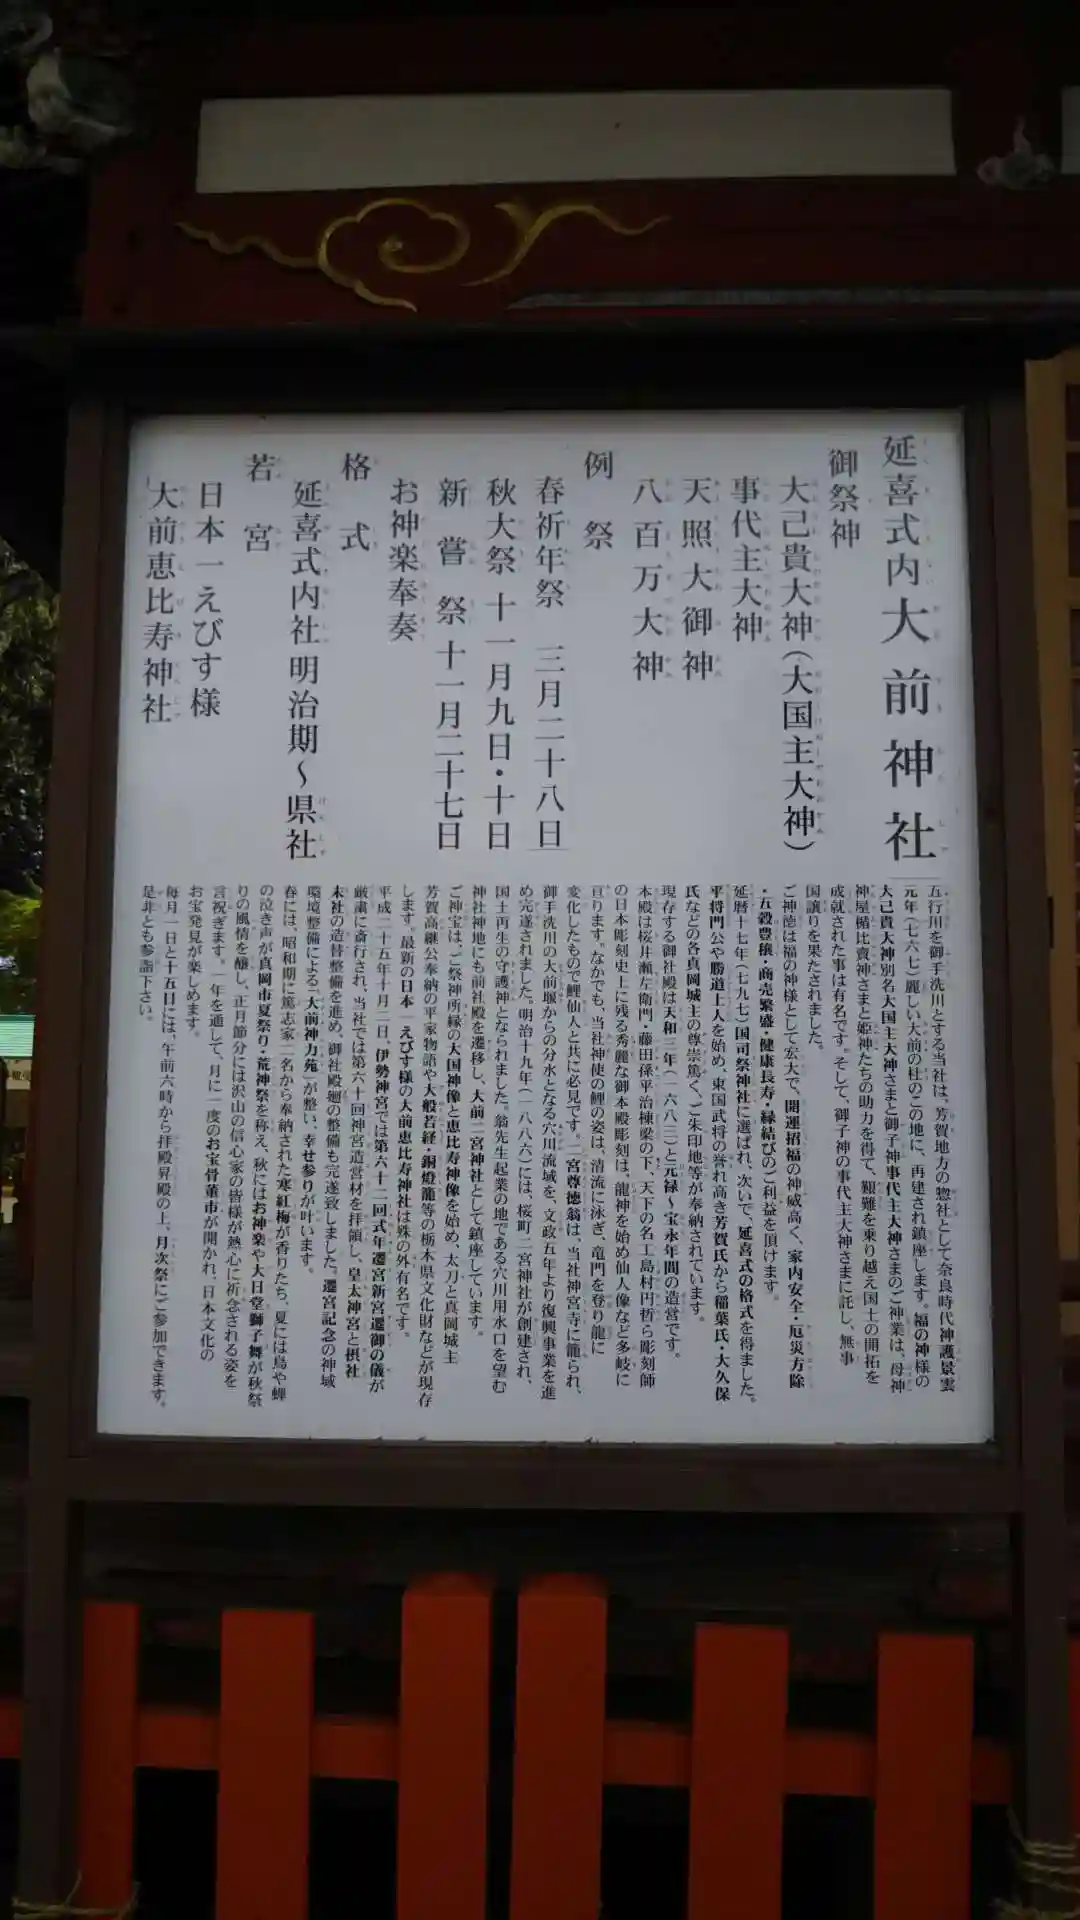 延喜式内大前神社
御祭神
大己貴大神(大国主大神)
事代主大神
天照大御神
八百万大神
例祭
春祈年祭 三月二十八日
秋大祭 十一月九日・十日
新嘗祭 十一月二十七日
お神楽奉奏
格式
延喜式内社 明治期～県社
若宮
日本一えびす様
大前恵比寿神社
五行川を御手洗川とする当社は、芳賀地方の惣社として奈良時代神護景雲
元年(七六七)麗しい大前の杜のこの地に、再建され鎮座します。福の神様の
大己貴大神別名大国主大神さまと御子神事代主大神さまのご神業は、母神
神屋楯比賣神さまと姫神たちの助力を得て、艱難を乗り越え国土の開拓を
成就された事は有名です。そして、御子神の事代主大神さまに託し、無事
国譲りを果たされました。
ご神徳は福の神様として宏大で、開運招福の神威高く、家内安全・厄災方除
・五穀豊穣・商売繁盛・健康長寿・縁結びのご利益を頂けます。
延暦十七年(七九七)国司祭神社に選ばれ、次いで、延喜式の格式を得ました。
平将門公や勝道上人を始め、東国武将の誉れ高き芳賀氏から稲葉氏・大久保
氏などの各真岡城主の尊崇篤く、ご朱印地等が奉納されています。
現存する御社殿は天和三年(一六八三)と元禄～宝永年間の造営です。
本殿は桜井瀬左衛門・藤田孫平治棟梁の下、天下の名工島村円哲ら彫刻師
の日本彫刻史上に残る秀麗な御本殿彫刻は、龍神を始め仙人像など多岐に
亘ります。なかでも、当社神使の鯉の姿は、清流に泳ぎ、竜門を登り龍に
変化したもので鯉仙人と共に必見です。二宮尊徳翁は、当社神宮寺に籠られ、
御手洗川の大前堰からの分水となる穴川流域を、文政五年より復興事業を進
め完遂されました。明治十九年(一八八六)には、桜町二宮神社が創建され、
国土再生の守護神となられました。翁先生起業の地である穴川用水口を望む
神社神地にも前社殿を遷移し、大前二宮神社として鎮座しています。
ご神宝は、ご祭神所縁の大国神像と恵比寿神像を始め、太刀と真岡城主
芳賀高継公奉納の平家物語や大般若経・銅燈籠等の栃木県文化財などが現存
します。最新の日本一えびす様の大前恵比寿神社は殊の外有名です。
平成二十五年十月二日、伊勢神宮では第六十二回式年遷宮新宮遷御の儀が
厳粛に斎行され、当社では第六十回神宮造営材を拝領し、皇太神宮と摂社
末社の造替整備を進め、御社殿廻の整備も完遂致しました。遷宮記念の神域
環境整備による「大前神力苑」が整い、幸せ参りが叶います。
春には、昭和期に篤志家二名から奉納された寒紅梅が香りたち、夏には鳥や蝉
の泣き声が真岡市夏祭り・荒神祭を称え、秋にはお神楽や大日堂獅子舞が秋祭
りの風情を醸し、正月節分には沢山の信心家の皆様が熱心に祈念される姿を
言祝ぎます。一年を通して、月に一度のお宝骨董市が開かれ、日本文化の
お宝発見が楽しめます。
毎月一日と十五日には、午前六時から拝殿昇殿の上、月次祭にご参加できます。
是非とも参詣下さい。